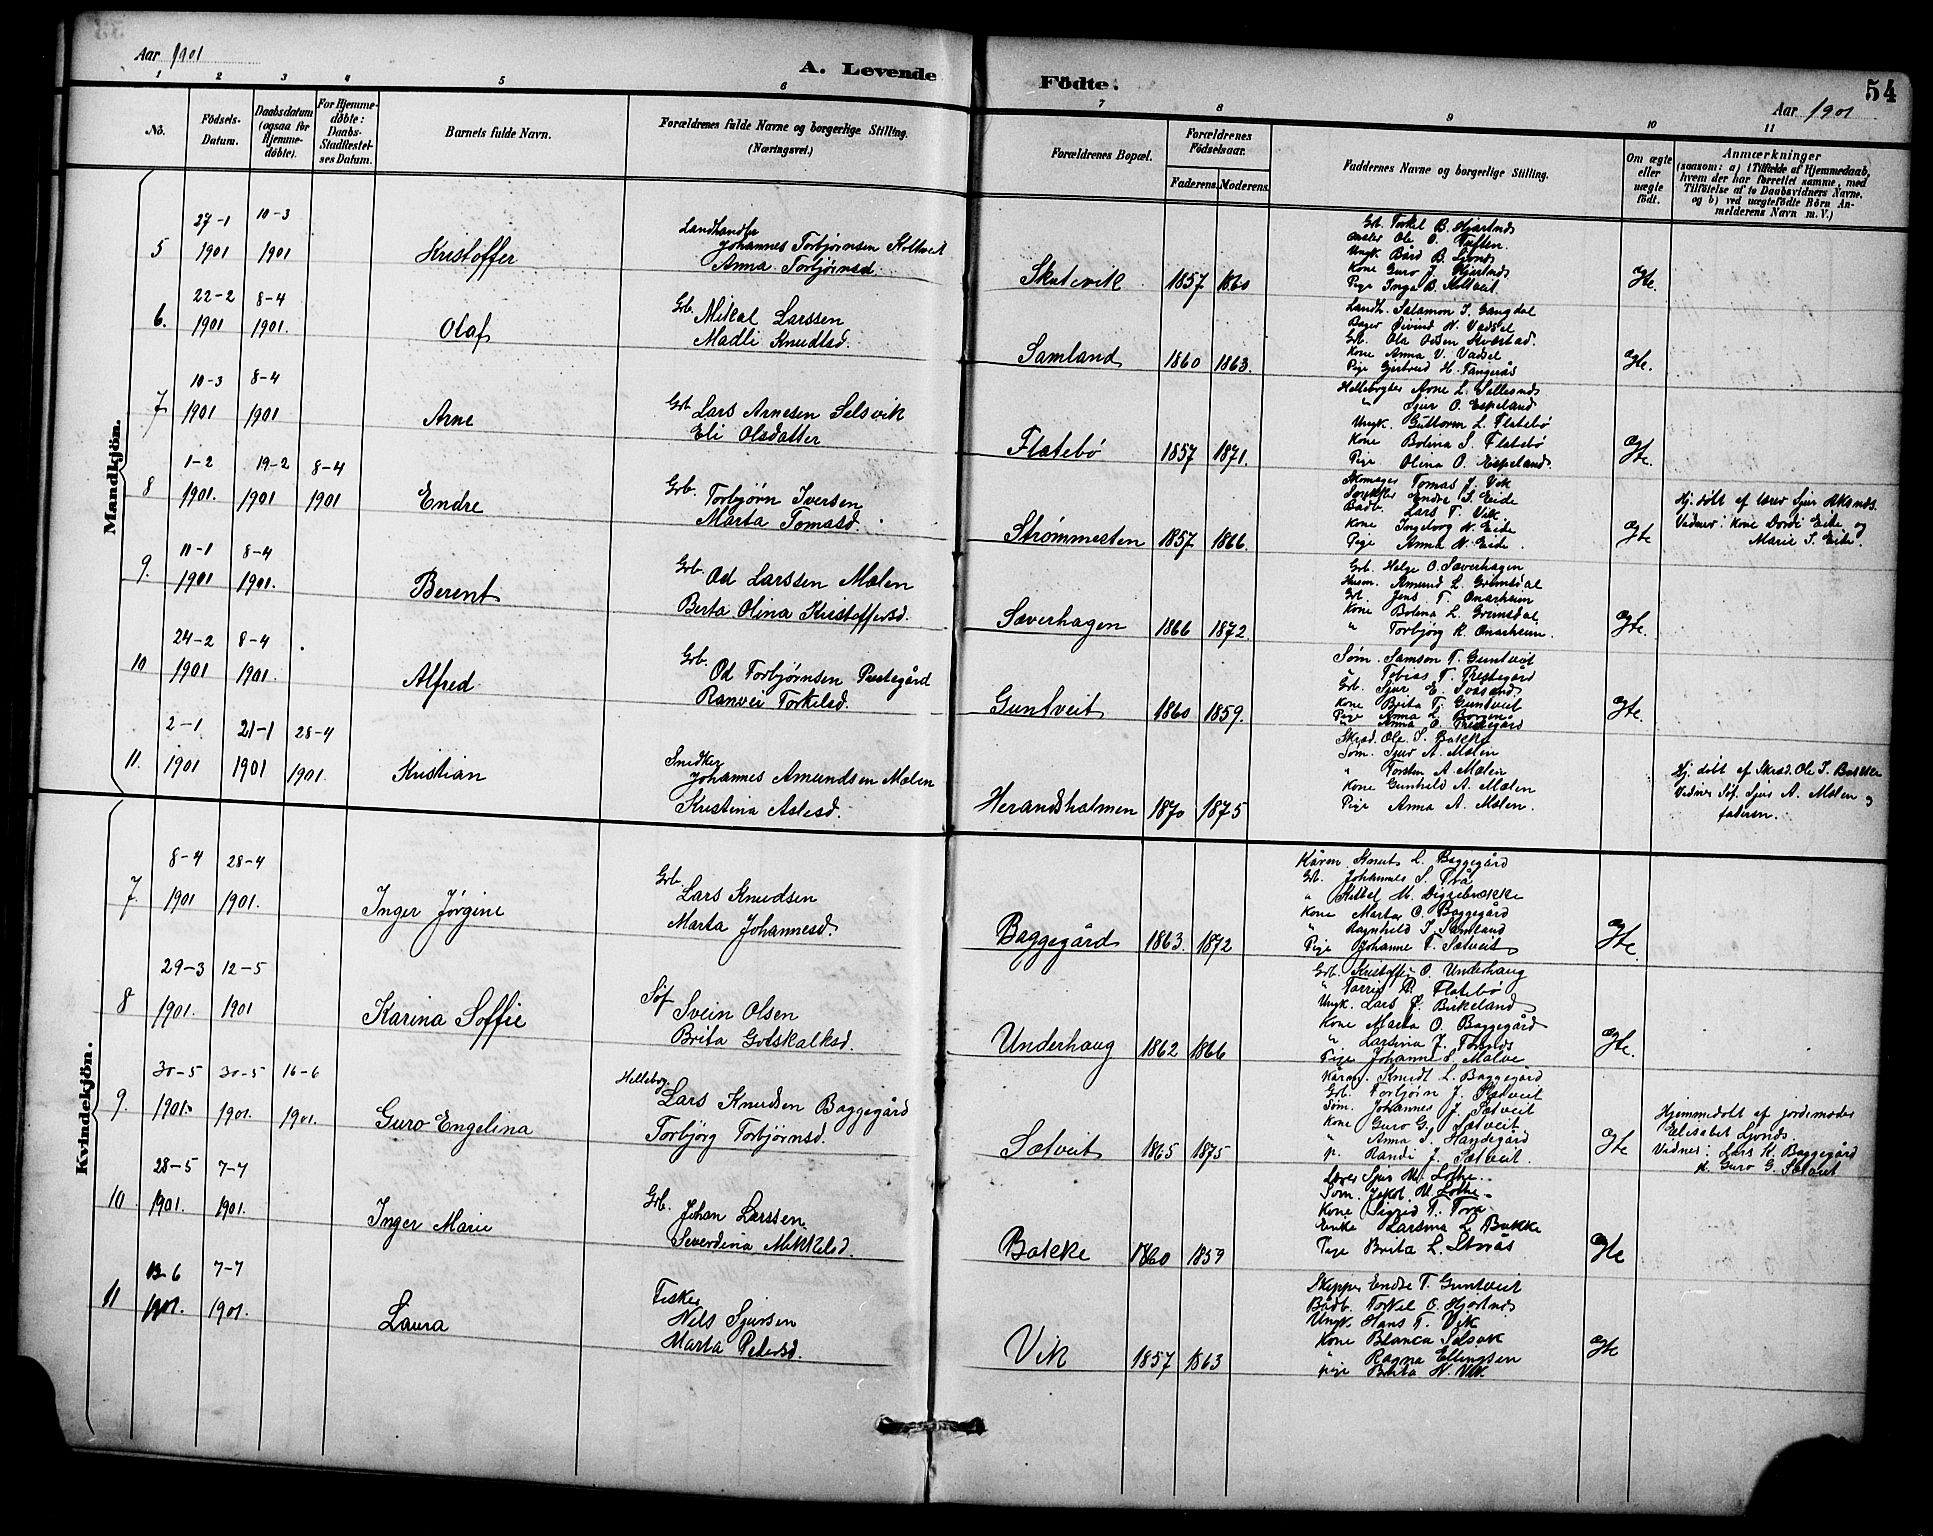 Aar 1901
A. Levende Födte.
54
Aar 1901
1 2 3 4 5 6 7 8 9 10 11
No.
Födsels-Datum.
Daabsdatum (ogsaa for Hjemmedøbte).
For Hjemmedøbte: Daabs-Stadfestelses Datum.
Barnets fulde Navn.
Forældrenes fulde Navne og borgerlige Stilling. (Næringsvei.)
Forældrenes Bopæl.
Forældrenes Födselsaar.
Faderens. Moderens.
Faddernes Navne og borgerlige Stilling.
Om ægte eller uægte födt.
Anmærkninger
(saasom: a) i Tilfælde af Hjemmedaab, hvem der har forrettet samme, med Tilföielse af to Daabsvidners Navne, og b) ved uægtefödte Börn Anmelderens Navn m. V.)
Mandkjön.
5
27-1 1901
10-3 1901
Kristoffer
Landhandler
Johannes Torbjørnsen Koltveit
Anna Torbjørnsd.
Skutevik
1857 1860
Gb. Torkel B. Hjartnes
Ole O. Tuften.
Ungk. Bård B.
Kone Guro J.
Pige Inga B. Koltveit
Gte.
6.
22-2 1901
8-4 1901.
Olaf
Grb. Mikal Larssen
Madli Knudtsd.
Samland
1860 1863.
Landh. Salamon J. Gangdal
Bager Øivind N. Vadsel
Grb. Ola Odsen
Kone Anna V. Vadsel
Pige Gjertrud H. Tangerås
Gte.
7
10-3 1901
8-4 1901
Arne
Grb. Lars Arnesen Selsvik
Eli Olsdatter
Flatebø
1857 1871.
Helleborgbr Arne L.
" Sjur O. Espeland
Ungk. Guttorm L. Flatebø
Kone Bolina S. Flatebø
Pige Olina O. Espeland.
Gte.
8
1-2 1901.
19-2 1901
8-4 1901
Endre
Grb. Torbjørn Iversen
Marta Tomasd.
Strømmesten
1857 1866.
Skomager Tomas J. Vik
Endre S. Eide
Bådb. Lars T. Vik
Kone Ingeborg N. Eide
Pige Anna N. Eide.
Gte
Hj. døbt af lærer Sjur Aksnes.
Vidner: Kone Dordi Eide og
Marie S. Eide.
9.
11-1 1901
8-4 1901.
Berent
Grb. Od Larssen Mælen
Berta Olina Kristoffersd.
Sæverhagen
1866 1872.
Grb. Helge O. Sæverhagen
Husm. Amund L. Grimsdal
Grb. Jens T. Onarheim
Kone Bolina L. Grimsdal
" Torbjørg K. Onarheim.
Gte.
10
24-2 1901
8-4 1901.
Alfred
Grb. Od Torbjørnsen Prestegård
Ranvei Torkelsd.
Guntveit
1860 1859.
Søm. Samson T. Guntveit
" Tobias T. Prestegård
Grb. Sjur E. Svåsand
Kone Brita T. Guntveit
Pige Anna L. Borgen
" Anna O. Prestegård
Gte.
11.
2-1 1901
21-1 1901
28-4 1901.
Kristian
Snedker
Johannes Amundsen Mælen
Kristina Aslesd.
Herandsholmen
1870 1875
Skræd. Ole S. Bakke
Søm. Sjur A. Mælen
" Torsten A. Mælen
Kone Gunhild A. Mælen
Pige Anna A. Mælen.
Hj. døbt af Skræd. Ole S. Bakke
Vidner Søf. Sjur A. Mælen og
faderen.
Kvindekjön.
7
8-4 1901
28-4 1901.
Inger Jørgine
Grb. Lars Knudsen
Marta Johannesd.
Baggegård
1863. 1872
Kårm. Knut L. Baggegård
Gb. Johannes S. Trå
" Mikkel M. Digrebrekke
Kone Marta O. Baggegård
" Ragnhild I. Samland
Pige Johanne T. Sætveit
Gte
8
29-3 1901.
12-5 1901
Karina Soffie
Søf Svein Olsen
Brita Gotskalksd.
Underhaug
1862 1866
Grb. Kristoffer O. Underhaug
" Flatebø
Ungk. Lars Birkeland
Kone Marta O. Baggegård
" Larsina J.
Pige Johanne S. Malve
Gte.
9.
30-5 1901.
30-5 1901.
16-6 1901.
Guro Engelina
Hellebryg. Lars Knudsen Baggegård
Torbjørg Torbjørnsd.
Sætveit
1865 1875
Kårm. Knudt L. Baggegård
Grb. Torbjørn J. Sætveit
Søm. Johannes J. Sætveit
Kone Guro G. Sætveit
" Anna I. Handegård
p. Randi J. Sætveit.
Gte
Hjemmedøbt af jordmoder
Elisabet Ljones.
Vidner: Lars K. Baggegård
Guro G. Sætveit
10
28-5 1901.
7-7 1901.
Inger Marie
Grb. Johan Larssen
Severdina Mikkelsd.
Bakke
1860 1859
Lærer Sjur M. Lothe.
Søm. Jakob M. Lothe.
Kone Sigrid T. Trå
Enke Larsina L. Bakke
Pige Brita L. Storås
Gte
11
13-6 1901.
7-7 1901.
Laura
Fisker
Nils Sjursen
Marta Pedersd.
Vik
1857 1863
Skipper Endre T. Guntveit
Bådb. Torkel O. Hjartnes
Ungk. Hans T. Vik
Kone Blanca Selsvik
" Ragna Ellingsen
pige Brita N. Vik
Gte